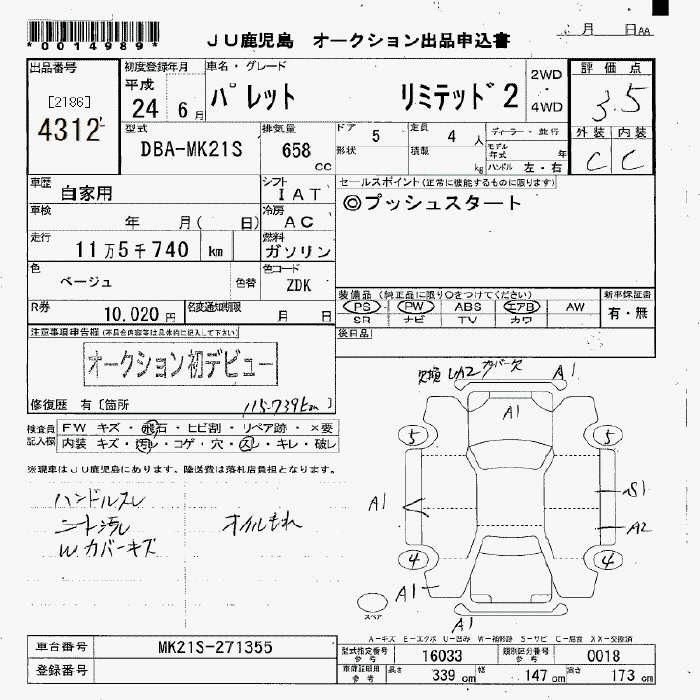 *0014989*
JU鹿児島 オークション出品申込書
月 日 AA
出品番号
[2186]
4312
初度登録年月
平成
24 6月
車名・グレード
パレット リミテッド2
2WD
・
4WD
評価点
3.5
型式
DBA-MK21S
排気量
658 cc
ドア 5
形状
定員 4 人
積載 kg
ディーラー・並行
モデル年式 年
ハンドル 左・右
外装 内装
C C
車歴
自家用
シフト
IAT
セールスポイント(正常に機能するものに限ります)
◎プッシュスタート
車検
年 月( 日)
冷房
AC
走行
11万5千740 km
燃料
ガソリン
色
ベージュ
色替
色コード
ZDK
R券
10.020円
名変通知期限
月 日
装備品(純正品に限り○をつけてください)
PS PW ABS エアB AW
SR ナビ TV カワ
新車保証書
有・無
注意事項申告欄(不具合内容等は具体的に記入して下さい)
オークション初デビュー
後日品
修復歴 有〔箇所 115.739km〕
検査員記入欄
FW キズ・飛石・ヒビ割・リペア跡・×要
内装 キズ・汚レ・コゲ・穴・スレ・キレ・破レ
※現車はJU鹿児島にあります、陸送費は落札店負担となります。
ハンドルスレ
シート汚レ
W.カバーキズ
オイルもれ
A1
A1
5
5
A1
S1
A2
4
4
A1
スペア
A1
A-キズ E-エクボ U-凹み W-補修跡 S-サビ C-腐食 XX-交換済
車台番号
MK21S-271355
登録番号
型式指定番号
参考
16033
類別区分番号
参考
0018
車庫証明用
参考
長さ 339 cm
幅 147 cm
高さ 173 cm